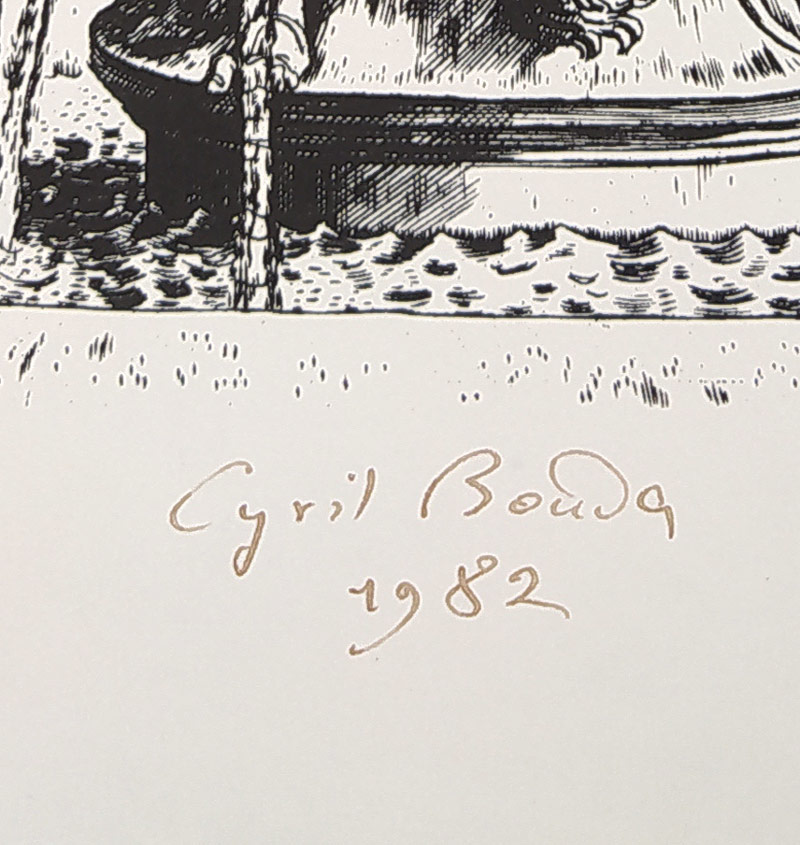 Cyril Bouda
1982